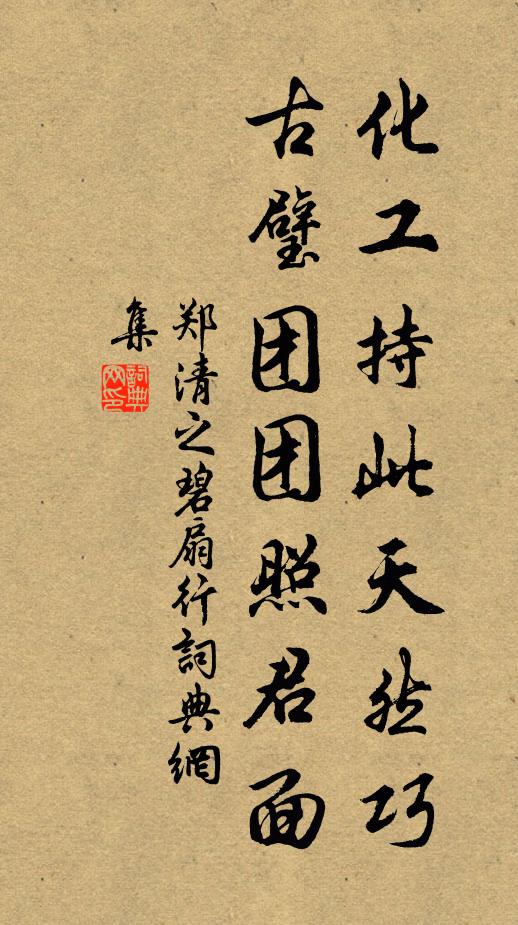 化工持此天然巧
古璧团团照君面
郑清之碧扇行詞典網
集
詞典網印